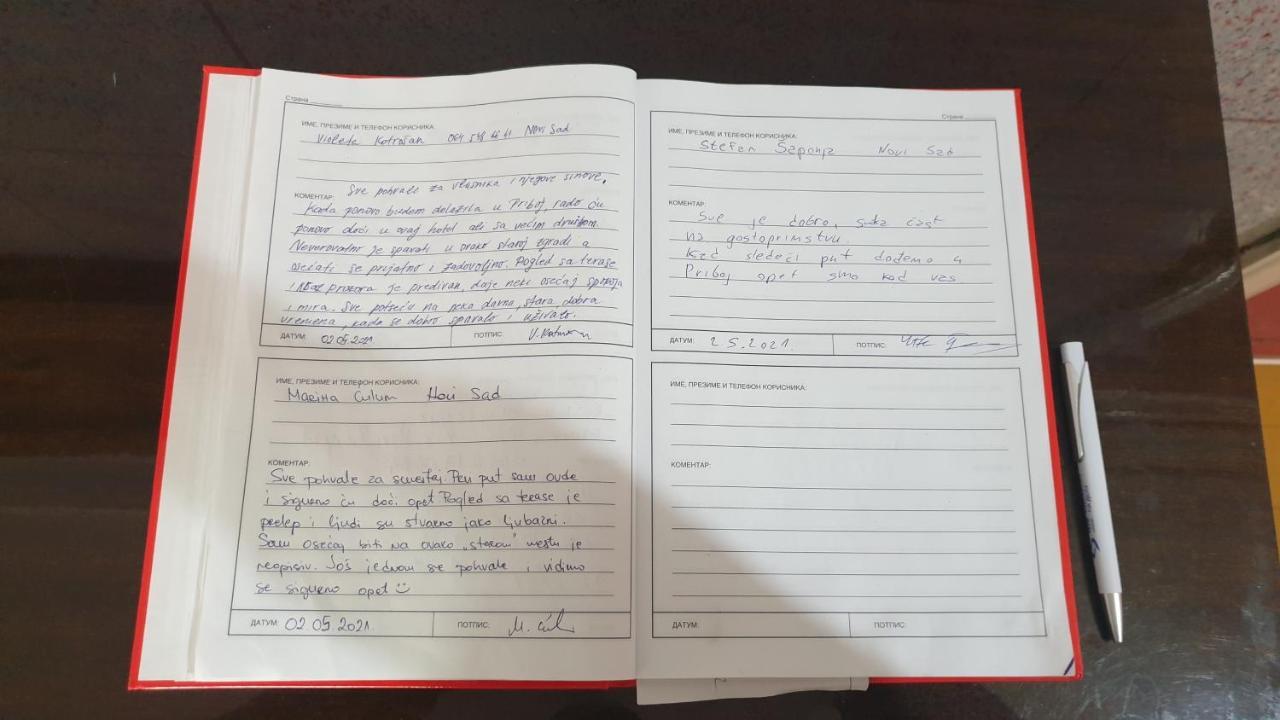 Страна
ИМЕ, ПРЕЗИМЕ И ТЕЛЕФОН КОРИСНИКА:
Violeta Kotrošan Novi Sad
КОМЕНТАР: Sve pohvale za vlasnika i njegove sinove.
Kada ponovo budem dolazila u Priboj, rado ću
ponovo doći u ovaj hotel ali sa većim društvom.
Neverovatno je spavati u ovako staroj zgradi a
osećati se prijatno i zadovoljno. Pogled sa terase
i prozora je predivan, daje neki osećaj spokoja
i mira. Sve potseća na neka davna, stara dobra
vremena, kada se dobro spavalo i uživalo.
ДАТУМ: 02.05.2021. ПОТПИС:
ИМЕ, ПРЕЗИМЕ И ТЕЛЕФОН КОРИСНИКА:
Sad
КОМЕНТАР:
Sve pohvale za smeštaj. Prvi put sam ovde
i sigurno ću doći opet. Pogled sa terase je
prelep i ljudi su stvarno jako ljubazni.
Sam osećaj biti na ovako „starom" mestu je
neopisiv. Još jednom sve pohvale i vidimo
se sigurno opet ☺
ДАТУМ: 02.05.2021. ПОТПИС:
Страна
ИМЕ, ПРЕЗИМЕ И ТЕЛЕФОН КОРИСНИКА:
Stefan Šaponja Novi Sad
КОМЕНТАР:
Sve je dobro, svaka čast
na gostoprimstvu.
Kad sledeći put dođemo u
Priboj opet smo kod vas.
ДАТУМ: 2.5.2021. ПОТПИС:
ИМЕ, ПРЕЗИМЕ И ТЕЛЕФОН КОРИСНИКА:
КОМЕНТАР:
ДАТУМ: ПОТПИС: